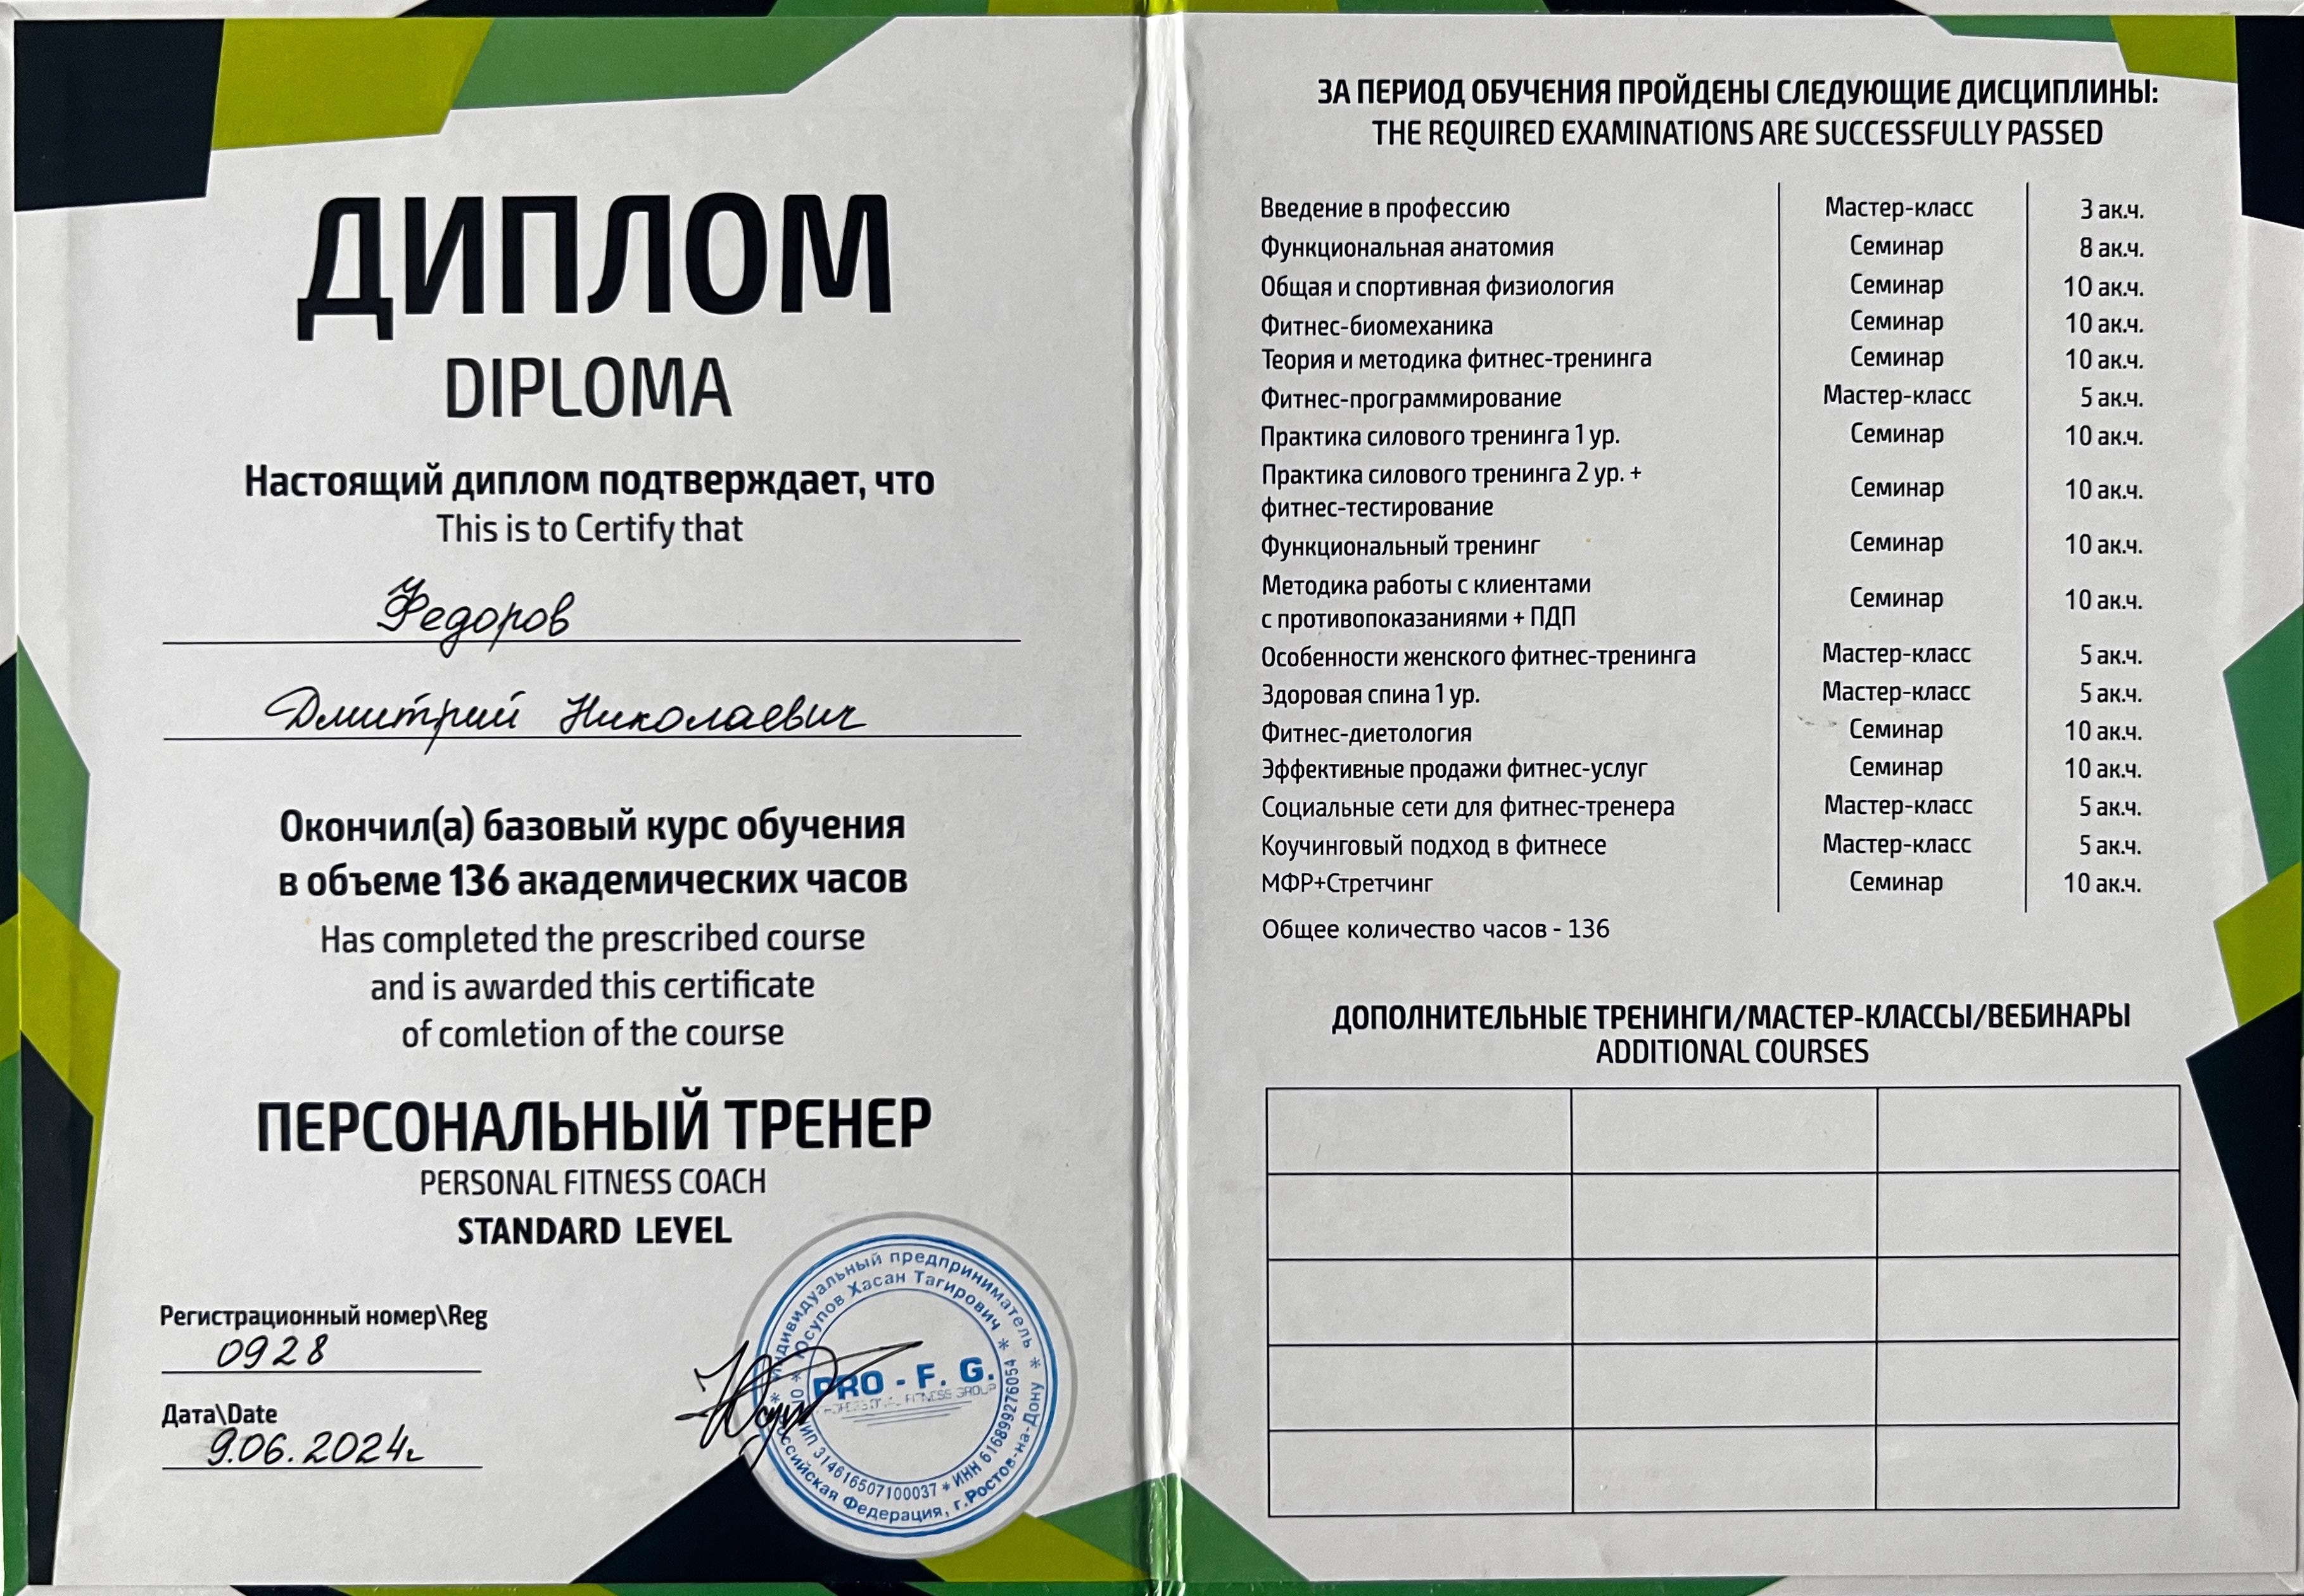 ДИПЛОМ
DIPLOMA
Настоящий диплом подтверждает, что
This is to Certify that
Федоров
Дмитрий Николаевич
Окончил(а) базовый курс обучения
в объеме 136 академических часов
Has completed the prescribed course
and is awarded this certificate
of comletion of the course
ПЕРСОНАЛЬНЫЙ ТРЕНЕР
PERSONAL FITNESS COACH
STANDARD LEVEL
Регистрационный номер\Reg
0928
Дата\Date
9.06.2024г
Индивидуальный предприниматель *
Юсупов Хасан Тагирович *
PRO - F. G.
PROFESSIONAL FITNESS GROUP
314616507100037 * ИНН 616899276054
Российская Федерация, г.Ростов-на-Дону *
ЗА ПЕРИОД ОБУЧЕНИЯ ПРОЙДЕНЫ СЛЕДУЮЩИЕ ДИСЦИПЛИНЫ:
THE REQUIRED EXAMINATIONS ARE SUCCESSFULLY PASSED
Введение в профессию Мастер-класс 3 ак.ч.
Функциональная анатомия Семинар 8 ак.ч.
Общая и спортивная физиология Семинар 10 ак.ч.
Фитнес-биомеханика Семинар 10 ак.ч.
Теория и методика фитнес-тренинга Семинар 10 ак.ч.
Фитнес-программирование Мастер-класс 5 ак.ч.
Практика силового тренинга 1 ур. Семинар 10 ак.ч.
Практика силового тренинга 2 ур. +
фитнес-тестирование Семинар 10 ак.ч.
Функциональный тренинг Семинар 10 ак.ч.
Методика работы с клиентами
с противопоказаниями + ПДП Семинар 10 ак.ч.
Особенности женского фитнес-тренинга Мастер-класс 5 ак.ч.
Здоровая спина 1 ур. Мастер-класс 5 ак.ч.
Фитнес-диетология Семинар 10 ак.ч.
Эффективные продажи фитнес-услуг Семинар 10 ак.ч.
Социальные сети для фитнес-тренера Мастер-класс 5 ак.ч.
Коучинговый подход в фитнесе Мастер-класс 5 ак.ч.
МФР+Стретчинг Семинар 10 ак.ч.
Общее количество часов - 136
ДОПОЛНИТЕЛЬНЫЕ ТРЕНИНГИ/МАСТЕР-КЛАССЫ/ВЕБИНАРЫ
ADDITIONAL COURSES